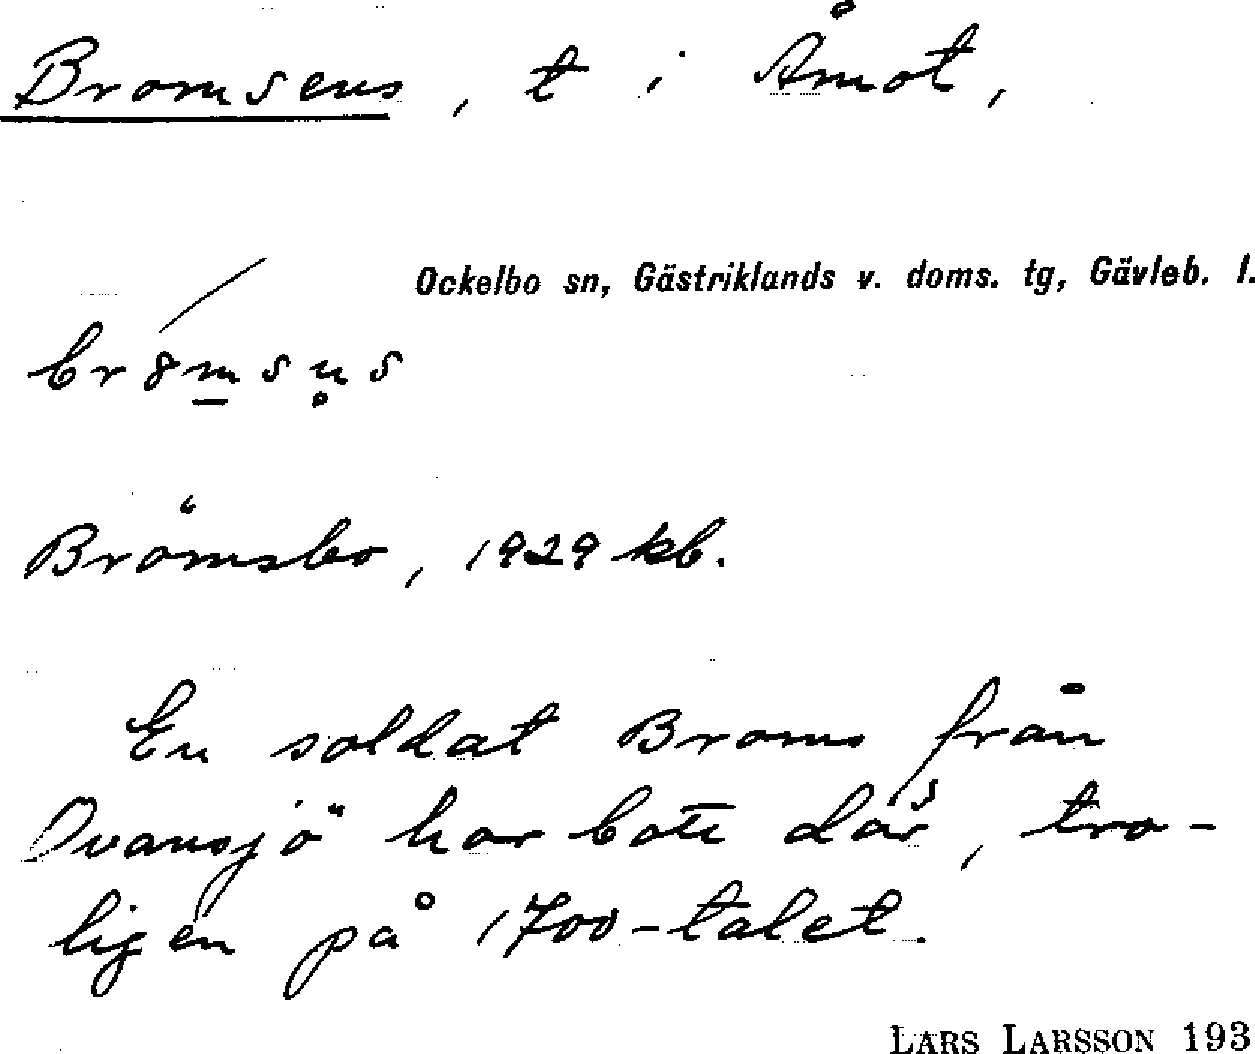 Bromsens, t i Åmot,
Ockelbo sn, Gästriklands v. doms. tg, Gävleb. l.
br8m̲sn̥s
Brömsbo, 1929 kb.
En soldat Broms från
Ovansjö har bott där, tro-
ligen på 1700-talet.
LARS LARSSON 193